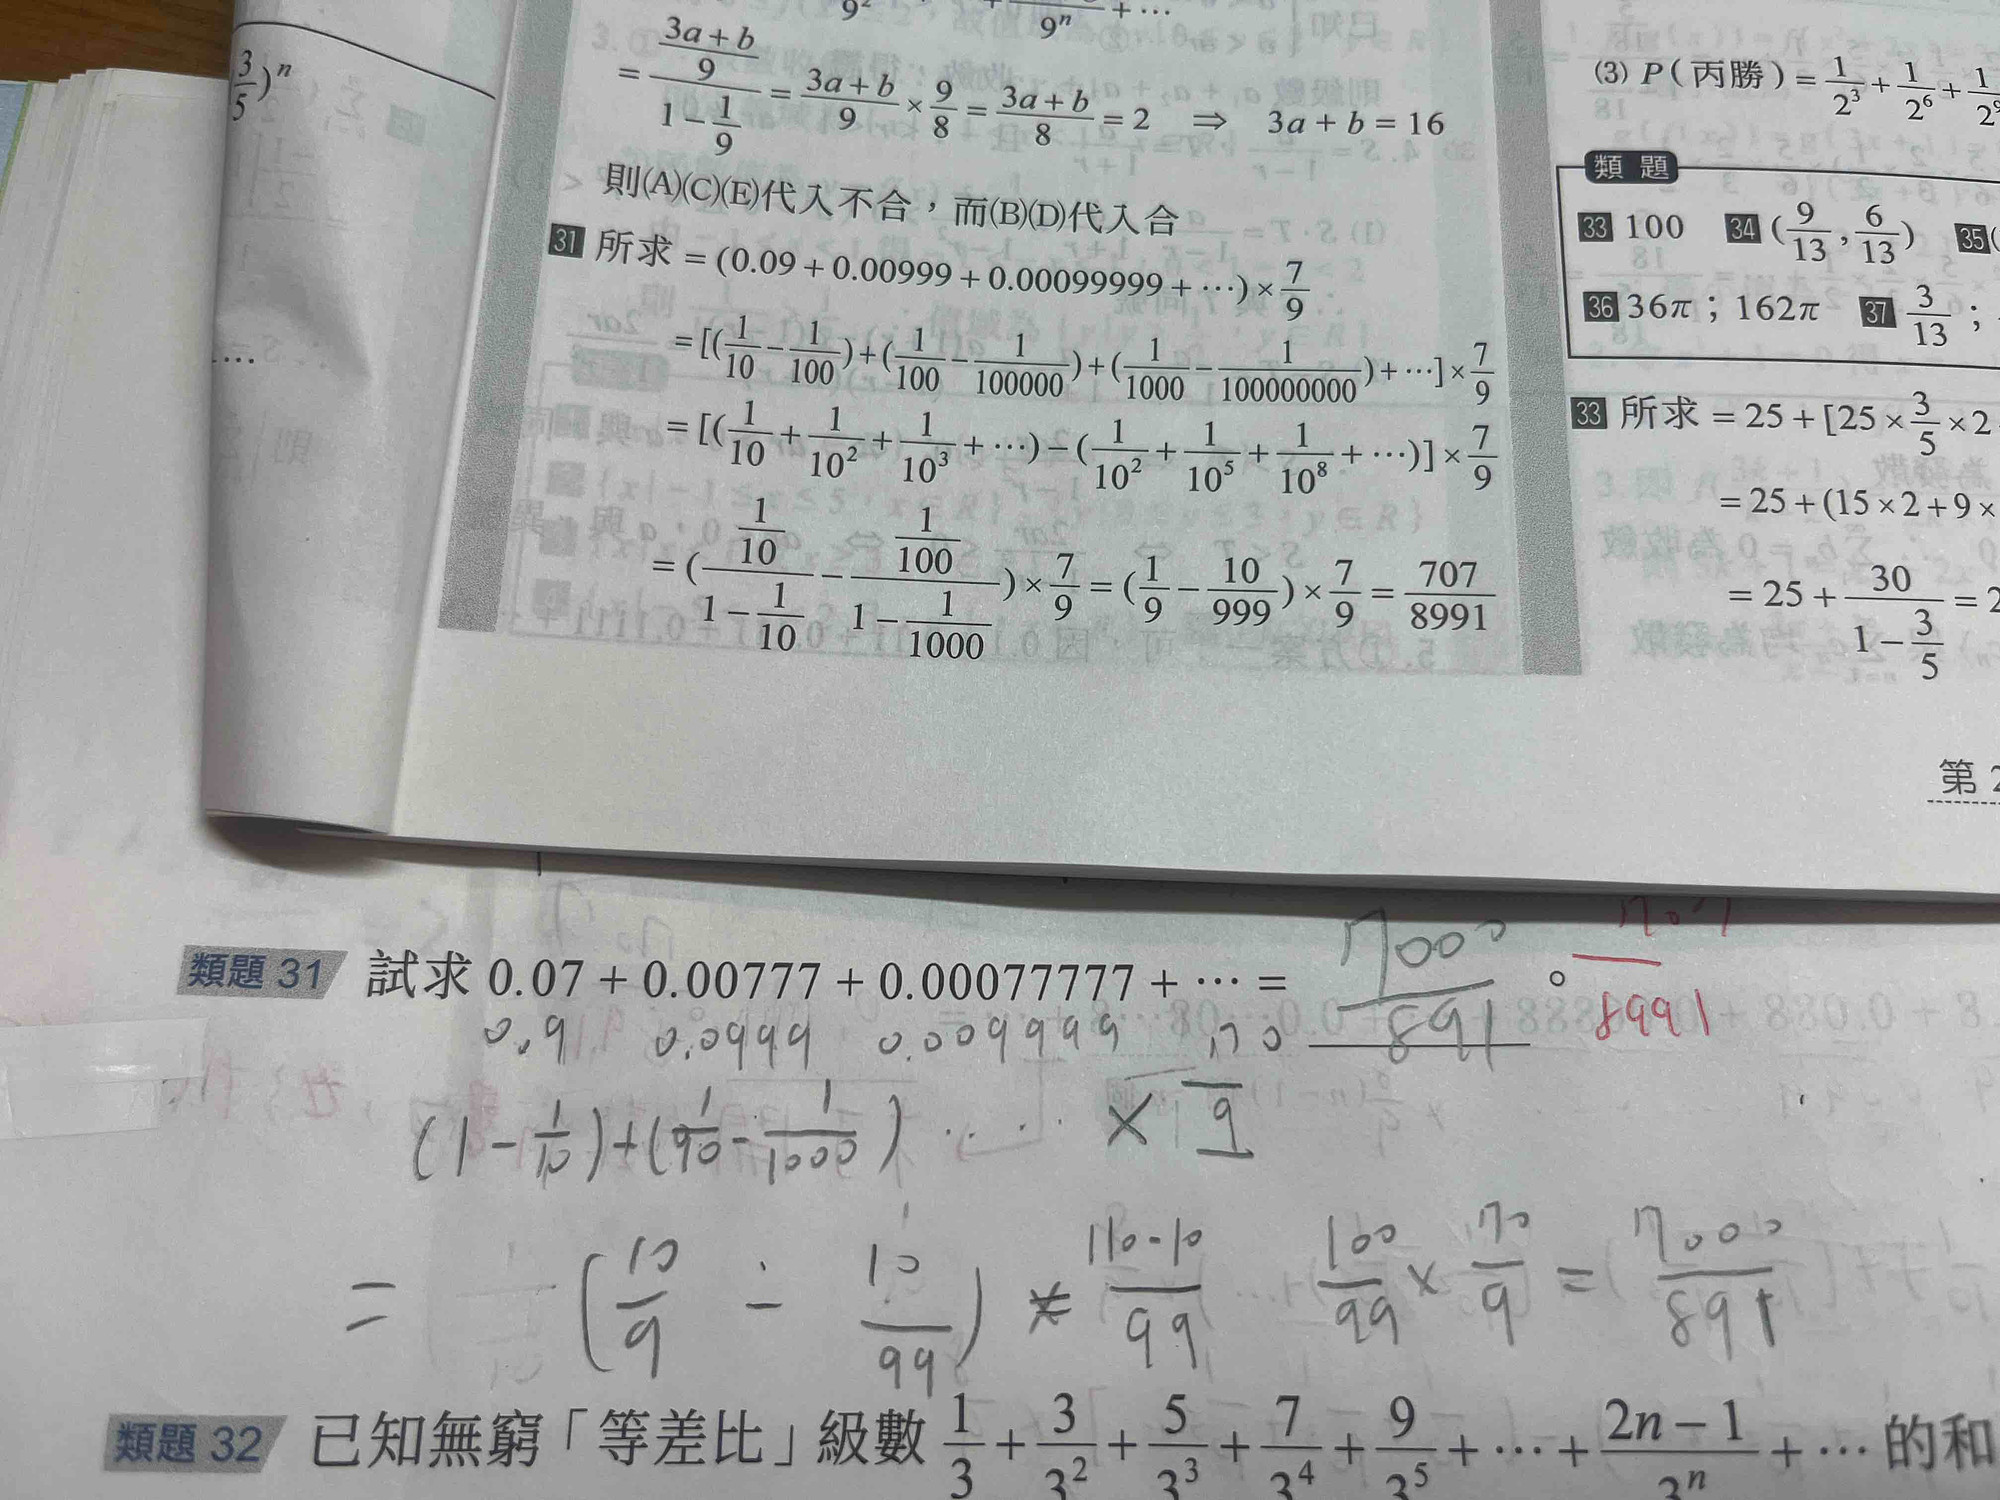 3/5)^n
....
9^2 + 9^n + ⋯
= ((3a+b)/9)/(1−1/9) = (3a+b)/9 × 9/8 = (3a+b)/8 = 2 ⇒ 3a+b=16
則(A)(C)(E)代入不合，而(B)(D)代入合
31 所求 = (0.09+0.00999+0.00099999+⋯)×7/9
= [(1/10−1/100)+(1/100−1/100000)+(1/1000−1/100000000)+⋯]×7/9
= [(1/10+1/10^2+1/10^3+⋯)−(1/10^2+1/10^5+1/10^8+⋯)]×7/9
= ((1/10)/(1−1/10)−(1/100)/(1−1/1000))×7/9 = (1/9−10/999)×7/9 = 707/8991
(3) P(丙勝) = 1/2^3+1/2^6+1/2^9
類題
33 100 34 (9/13,6/13) 35 (
36 36π；162π 37 3/13；
33 所求 = 25+[25×3/5×2
= 25+(15×2+9×
= 25+30/(1−3/5) = 2
第 2
類題 31 試求 0.07+0.00777+0.00077777+⋯ = 7000/891 。 707/8991
0.9 0.0999 0.009999 70
(1−1/10)+(1/90−1/1000) ⋯⋯ × 9
= (10/9 − 10/99) × 110-10/99 100/99 × 70/9 = 7000/891
類題 32 已知無窮「等差比」級數 1/3+3/3^2+5/3^3+7/3^4+9/3^5+⋯+(2n−1)/3^n+⋯ 的和